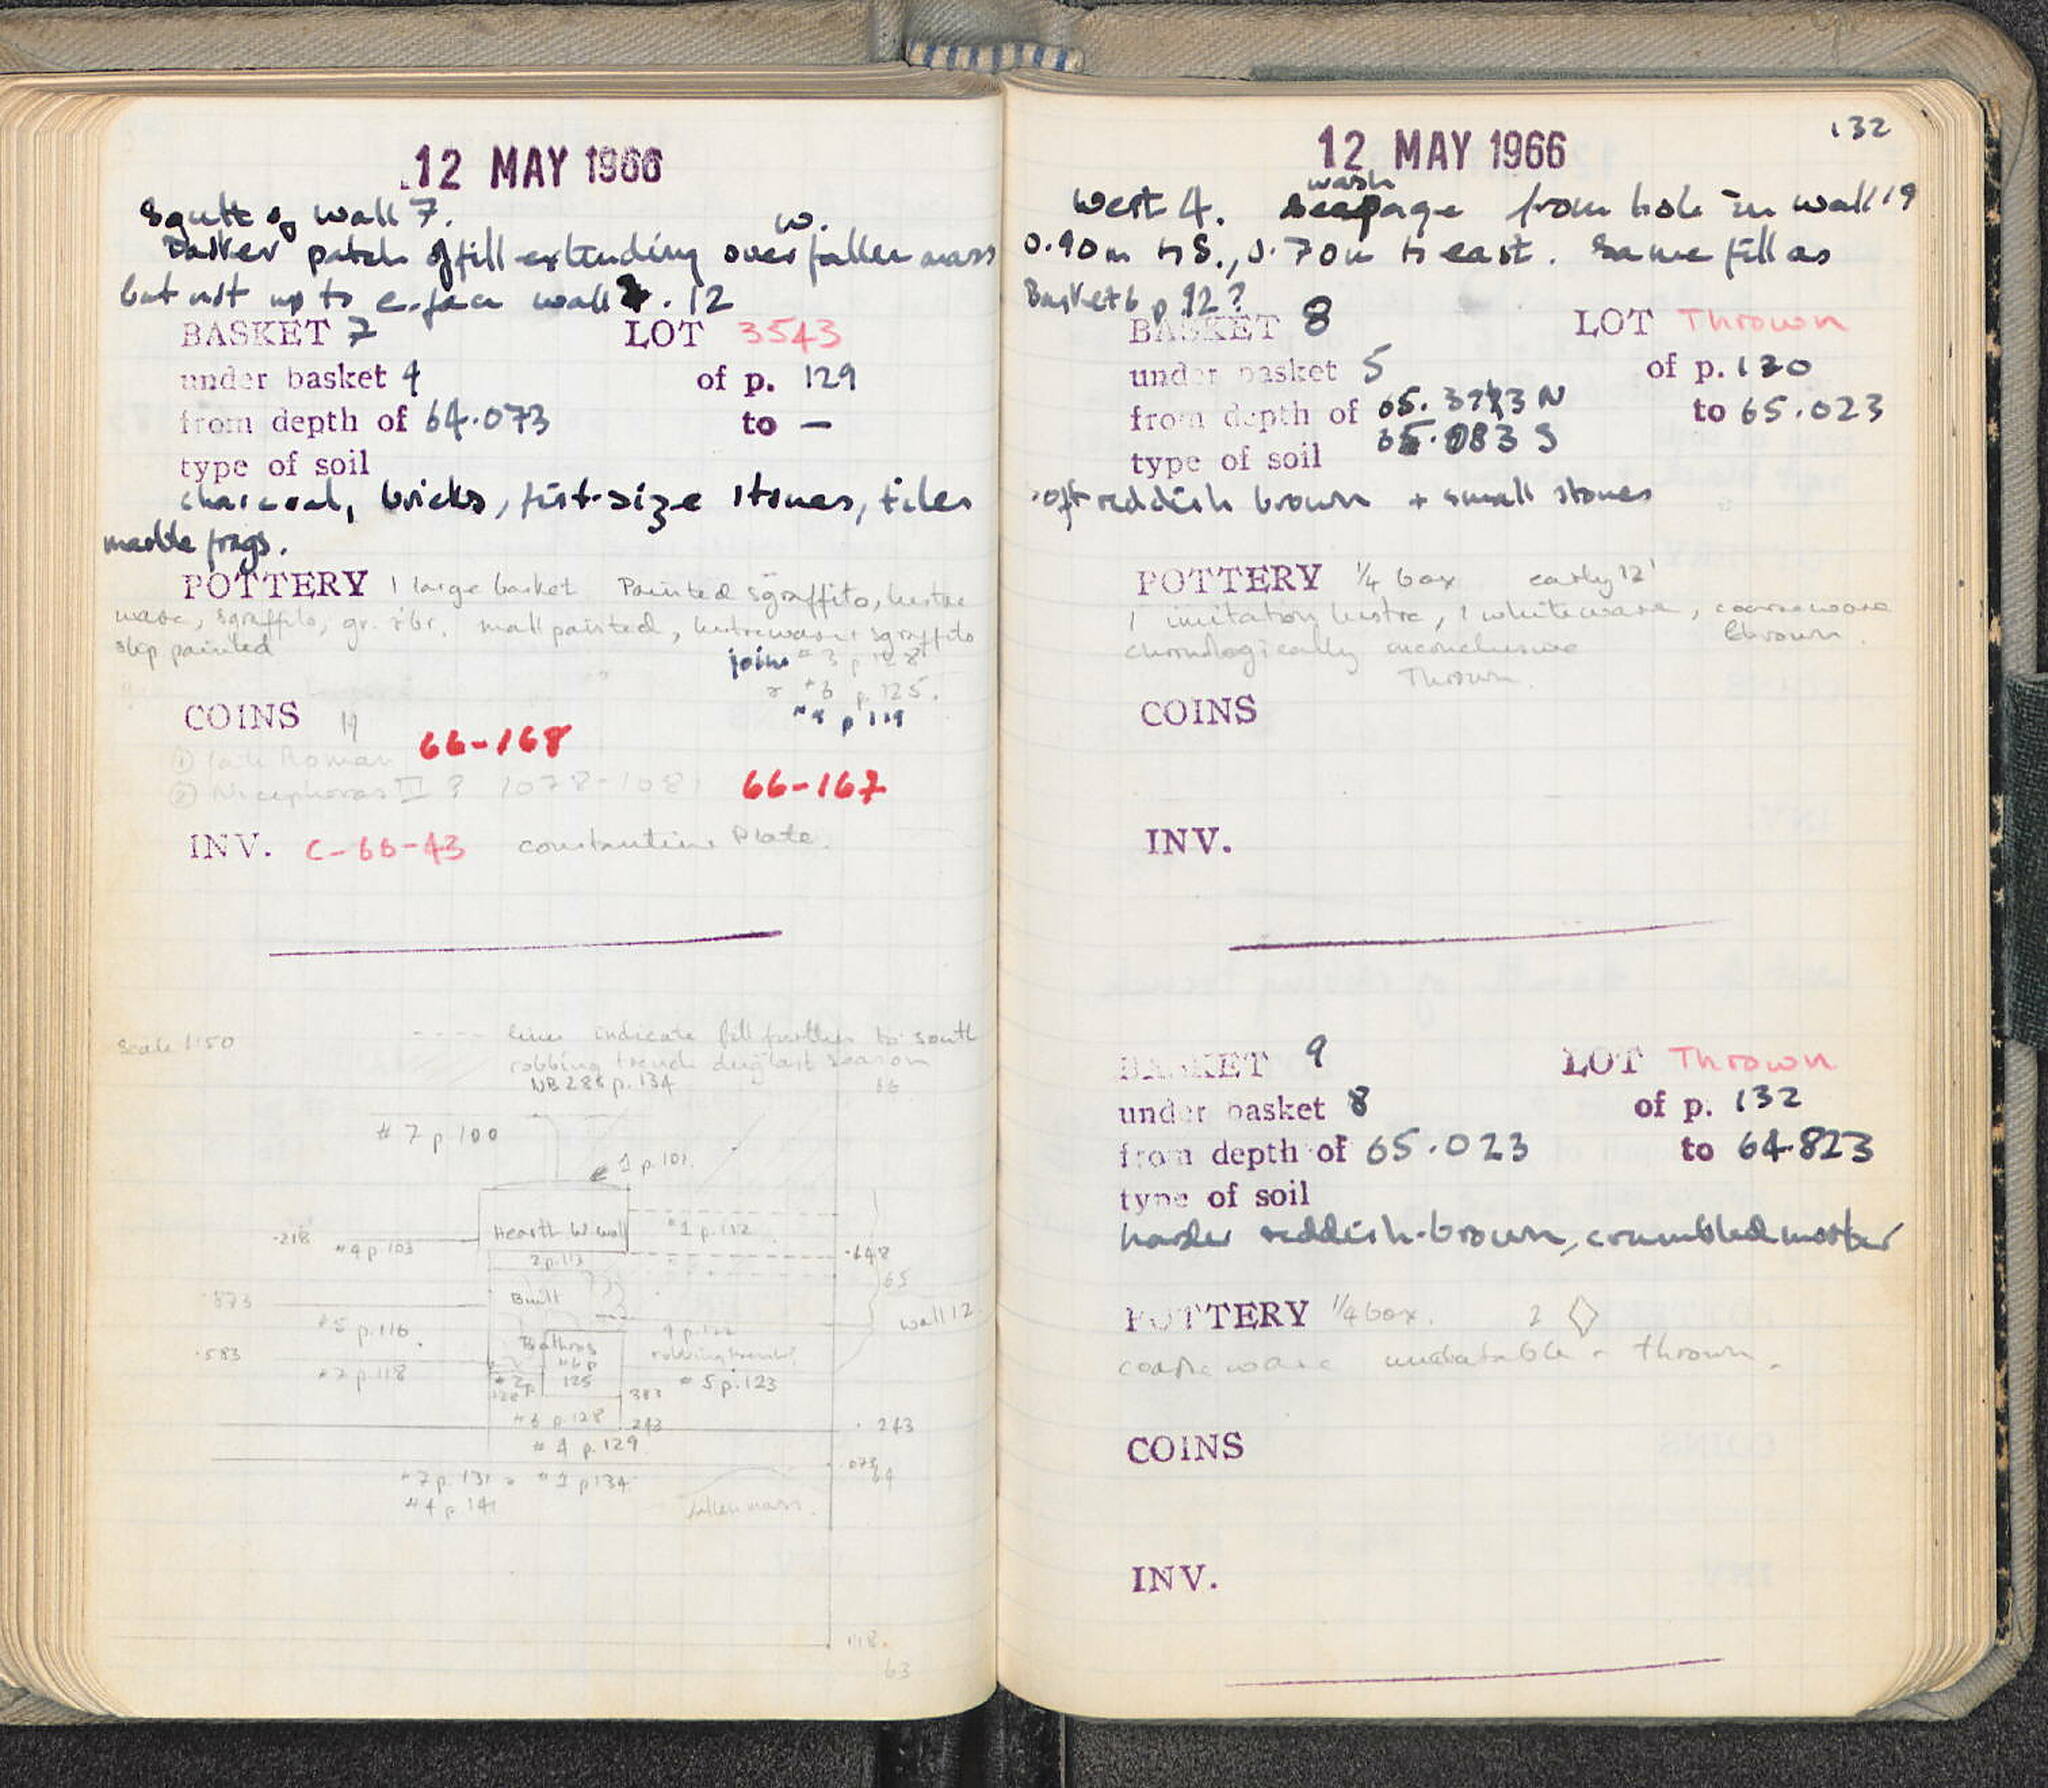 12 MAY 1966
South of wall 7. w.
Darker patch of fill extending over fallen mass
but not up to e. face wall . 12
BASKET 7 LOT 3543
under basket 4 of p. 129
from depth of 64.073 to —
type of soil
charcoal, bricks, fist-size stones, tiles
marble frags.
POTTERY 1 large basket Painted sgraffito, lustre
ware, sgraffito, gr. + br. painted, sgraffito
slip painted
joins #3 p 128
+ #6 p. 125.
#9 p 119
COINS
① late Roman 66-168
② Nicephoros III ? 1078-1081 66-167
INV. C-66-43 Constantine Plate.
Scale 1:50 ---- lines indicate fill further to south
robbing trench dug last season
NB 286 p. 134 66
# 7 p 100
1 p. 101.
Hearth W. wall #1 p. 112
.218 #4 p. 103
2 p. 113 .648
65
Built
.873 wall 12
#5 p. 116 9 p. 122
Bothros robbing trench
.583 #6 p
#2 p. 118 #2 p 125 #5 p. 123
128 383
#6 p 128 .243 .243
#4 p. 129
.073
64
#7 p. 131 #1 p 134
#4 p. 141 fallen mass.
118.
63
12 MAY 1966 132
wash
West 4. seepage from hole in wall 19
0.90m to S., 0.70m to east. Same fill as
Basket 6 p. 92?
BASKET 8 LOT Thrown
under basket 5 of p. 130
from depth of 65. N to 65.023
type of soil 083 S
soft reddish brown + small stones
POTTERY ¼ box early 12'
1 imitation lustre, 1 whiteware, coarseware
chronologically inconclusive thrown.
Thrown.
COINS
INV.
BASKET 9 LOT Thrown
under basket 8 of p. 132
from depth of 65.023 to 64.823
type of soil
harder reddish-brown, crumbled mortar
POTTERY ¼ box. 2
coarse ware undatable - thrown.
COINS
INV.